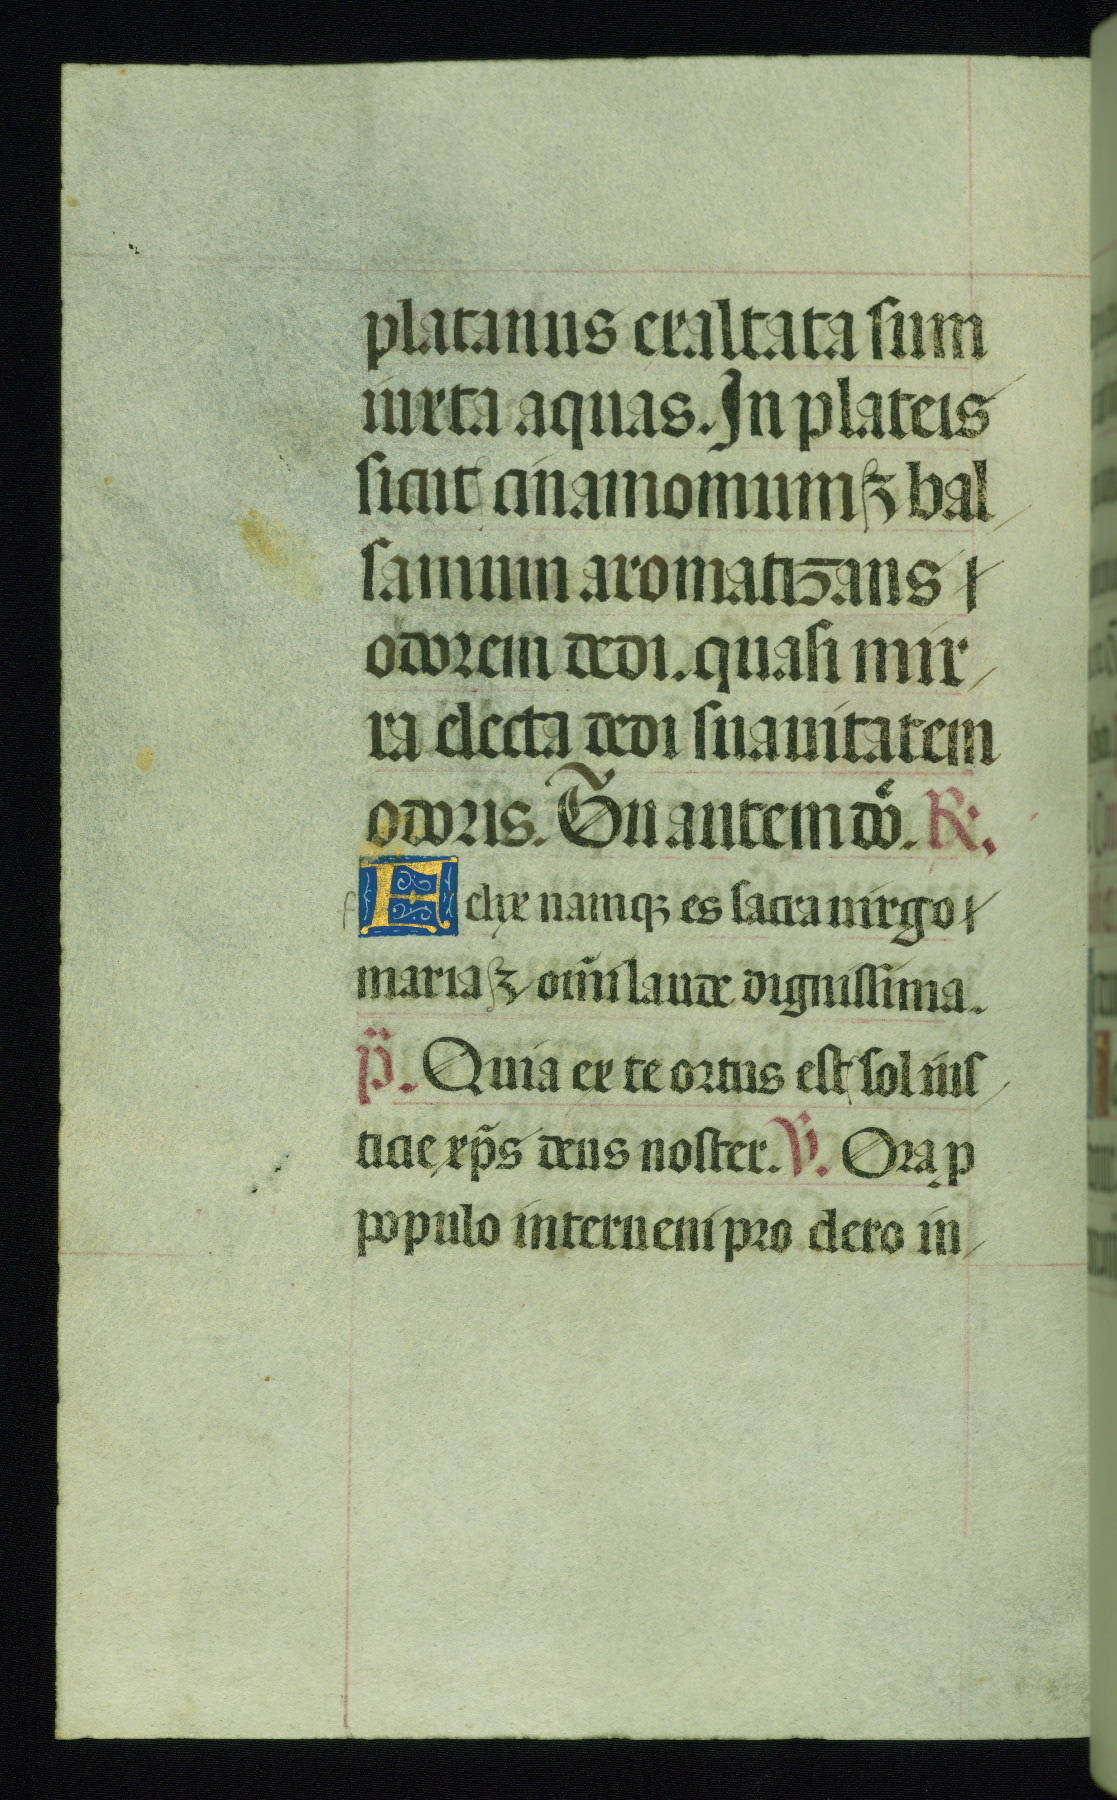 platanus exaltata sum
iuxta aquas. In plateis
sicut cinamomum ⁊ bal
samum aromatizans
odorem dedi. quasi mir
ra electa dedi suauitatem
odoris. Tu autem dó. R.
Felix namqꝫ es sacra uirgo
maria ⁊ om̄i laude dignissima.
p̈. Quia ex te ortus est sol ius
ticie xp̄s deus noster. V. Ora p
populo interueni pro clero in